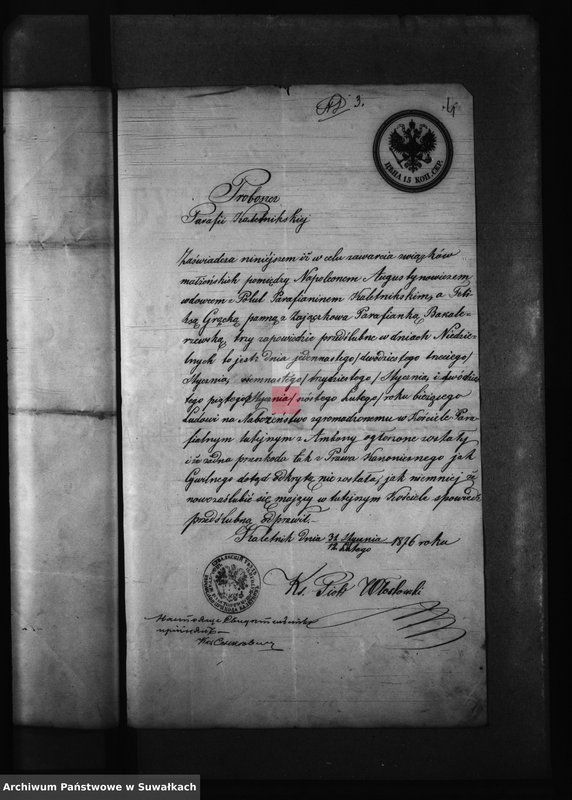 3.
4
ЦѢНА 15 КОП. СЕР.
Proboszcz
Parafii Kaletnikskiej
Zaświadcza niniejszem iż w celu zawarcia związków
małżeńskich pomiędzy Napoleonem Augustynowiczem
wdowcem z Potul Parafianinem Kaletnikskim, a Felik
są Grącką panną z Zajączkowa Parafianką Bakała-
rzewską, trzy zapowiedzie przedślubne w dniach Niedziel
nych to jest: dnia jedenastego/dwódziestego trzeciego/
Stycznia, ośmnastego/trzydziestego/Stycznia, i dwódzies
tego piątego Stycznia/szóstego Lutego/roku bieżącego
Ludowi na Nabożeństwo zgromadzonemu w Kościele Para
fialnym tutejszym z Ambony ogłoszone zostały
i że żadna przeszkoda tak z Prawa Kanonicznego jak
Cywilnego dotąd odkrytą nie została, jak niemniej że
nowozaślubić się mający w tutejszym Kościele spowiedź
przedślubną odprawił.
Kaletnik dnia 31 Stycznia/12 Lutego 1876 roku
Ks. Piotr Włostowski
Archiwum Państwowe w Suwałkach